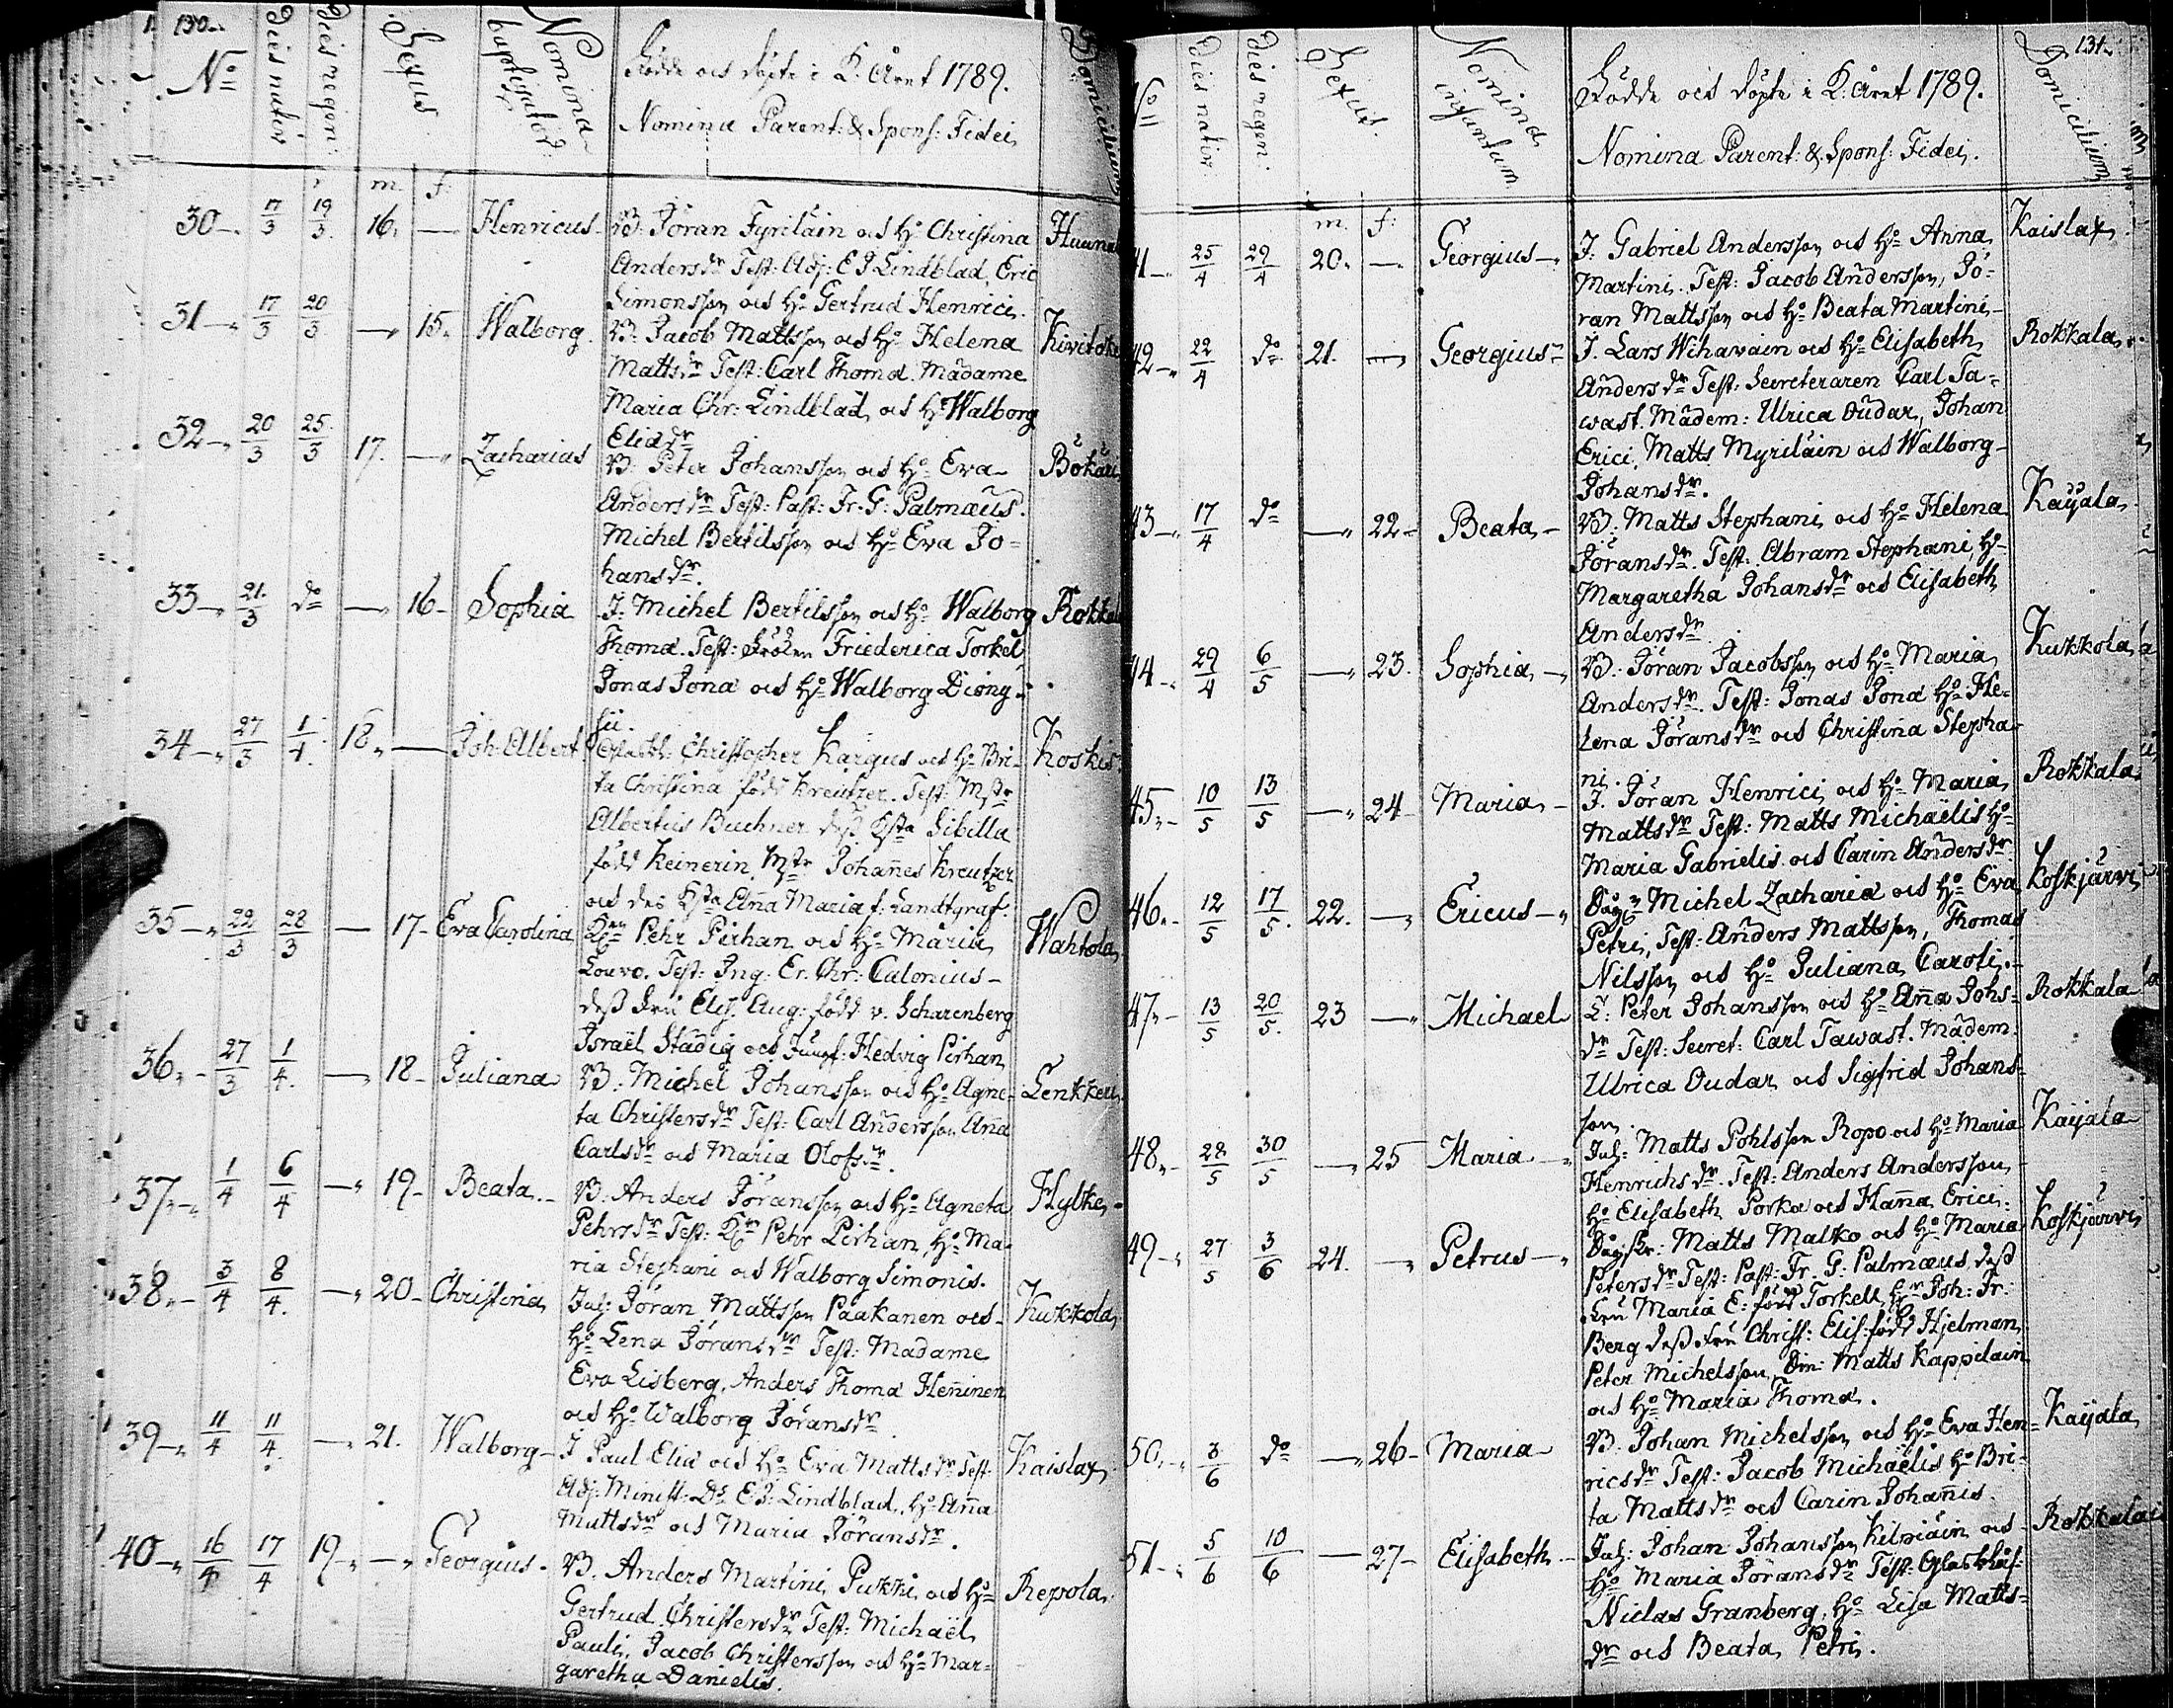 130.
No
Dies nativ:
Dies regen:
Sexus
Nomina baptizator:
Födde och döpte i K. Året 1789.
Nomina Parent: & Spons: Fidei
Domicilium
m. f:
30 17/3 19/3 16. — Henricus B. Jöran Fyriläin och Ho Christina
Andersdr Test: Adj: E J Lindblad, Eric
Simonsson och Ho Gertrud Henrici.
31 17/3 20/3 — 15. Walborg. B. Jacob Mattsson och Ho Helena
Mattsdr Test: Carl Thomæ. Madame
Maria Chr: Lindblad, och Ho Walborg
Eliædr
32 20/3 25/3 17. — Zacharias B: Peter Johansson och Ho Eva
Andersdr Test: Past: Fr: G: Palmæus.
Michel Bertilsson och Ho Eva Jo=
hansdr.
33 21/3 do — 16 Sophia J: Michel Bertilsson och Ho Walborg
Thomæ. Test: Fröken Friederica Torkel
Jonas Jonæ och Ho Walborg Diony=
sii.
34 27/3 1/4 18. — Joh: Albert Christopher Kargus och Ho Bri= Koskis
ta Christina född Kreutzer. Test: Mstr
Albertus Buchner dess Hsta Sibilla
född Keinerin, Mstr Johannes Kreutzer
och des Hsta Anna Maria f: Landtgraf.
35 22/3 28/3 — 17 Eva Carolina Pehr Pirhan och Ho Maria Wahtola
Louvo. Test: Ing: Er. Chr: Calonius
dess Fru Elis. Aug: född v. Scharenberg
Israël Stadig och Jungf: Hedvig Pirhan
36 27/3 1/4 — 18 Juliana B: Michel Johansson och Ho Agne=
ta Christersdr Test: Carl Andersson Anna
Carlsdr och Maria Olofsdr.
37 1/4 6/4 — 19 Beata B: Anders Göransson och Ho Agneta
Pehrsdr Test: Pehr Pirhan, Ho Ma=
ria Stephani och Walborg Simonis.
38 3/4 8/4 — 20 Christina Inh: Jöran Mattsson Paakanen och Kukkola
Ho Lena Jöransdr Test: Madame
Eva Lisberg, Anders Thomæ Henninen
och Ho Walborg Jöransdr
39 11/4 11/4 — 21. Walborg J Paul Eliæ och Ho Eva Mattsdr Test: Kaislax
Adj: Minist: Ds E J: Lindblad. Ho Anna
Mattsdr och Maria Jöransdr.
40 16/4 17/4 19 — Georgius B. Anders Martini Pukki och Ho Repola
Gertrud Christersdr Test: Michaël
Pauli, Jacob Christersson och Ho Mar=
garetha Danielis.
131.
No
Dies nativ
Dies regen:
Sexus.
Nomina infantum.
Födde och döpte i K: året 1789.
Nomina Parent: & Spons: Fidei.
Domicilium
m. f:
41 25/4 29/4 20. — Georgius J. Gabriel Andersson och Ho Anna Kaislax
Martini. Test: Jacob Andersson, Jö=
ran Mattsson och Ho Beata Martini
42 22/4 do 21. — Georgius J. Lars Wihavain och Ho Elisabeth Rokkala
Andersdr Test: Secreteraren Carl Ta=
wast. Madem: Ulrica Oudar, Johan
Erici, Matts Myriläin och Walborg
Johansdr.
43 17/4 do — 22 Beata B: Matts Stephani och Ho Helena Kayala
Jöransdr. Test: Abram Stephani, Ho
Margaretha Johansdr och Elisabeth
Andersdr
44 29/4 6/5 — 23. Sophia B. Jöran Jacobsson och Ho Maria Kukkola
Andersdr. Test: Jonas Jonæ Ho He=
lena Jöransdr och Christina Stepha=
ni.
45 10/5 13/5 — 24 Maria J. Jöran Henrici och Ho Maria Rokkala
Mattsdr Test: Matts Michaëlis Ho
Maria Gabrielis och Carin Andersdr
46 12/5 17/5 22. — Ericus Michel Zachariæ och Ho Eva Koskjärvi
Petri, Test: Anders Mattsson, Thomas
Nilsson och Ho Juliana Caroli.
47 13/5 20/5 23 — Michael L: Peter Johansson och Ho Anna Johs= Rokkala
dr Test: Secret: Carl Tawast. Madem:
Ulrica Oudar och Sigfrid Johans=
son.
48 28/5 30/5 — 25 Maria Inh: Matts Pohlsson Ropo och Ho Maria Kayala
Henrichsdr. Test: Anders Andersson,
Ho Elisabeth Porka och Hanna Erici.
49 27/5 3/6 24. — Petrus Matts Malko och Ho Maria Koskjärvi
Petersdr Test: Past: Fr. G: Palmæus, dess
Fru Maria E: född Torkell, Hr Joh: Fr:
Berg dess Fru Christ: Elis: född Hjelman,
Peter Michelsson, Matts Kappilain
och Ho Maria Thomæ.
50 3/6 do — 26 Maria B. Johan Michelsson och Ho Eva Hen= Kayala
ricsdr Test: Jacob Michaëlis Ho Bri=
ta Mattsdr och Carin Johannis.
51 5/6 10/6 — 27 Elisabeth Inh: Johan Johansson Kilpiäin och Rokkala
Ho Maria Jöransdr Test:
Niclas Granberg, Ho Lisa Matts=
dr och Beata Petri.